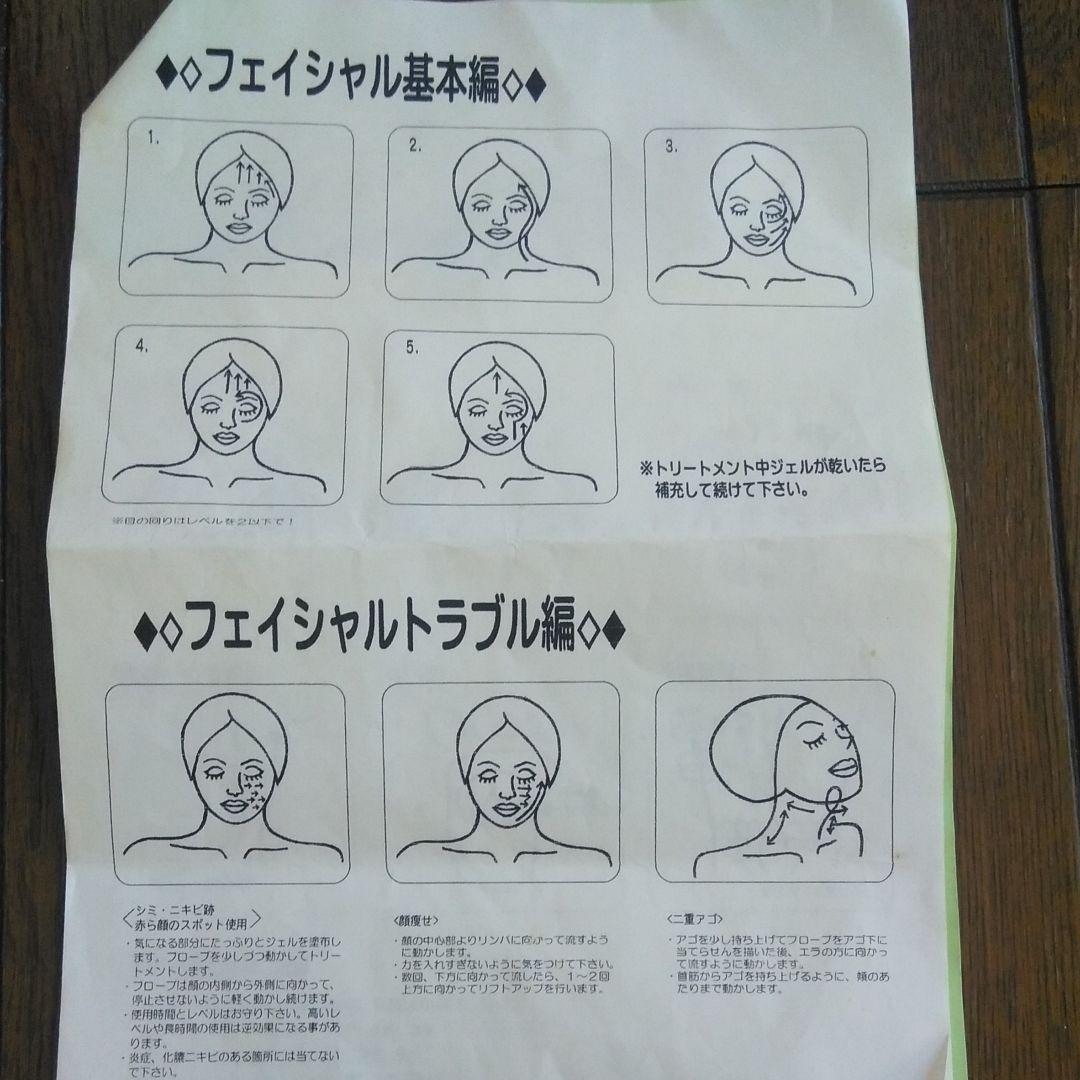 ◆◇フェイシャル基本編◇◆
1.
2.
3.
4.
5.
※トリートメント中ジェルが乾いたら
補充して続けて下さい。
※目の回りはレベルを2以下で！
◆◇フェイシャルトラブル編◇◆
〈シミ・ニキビ跡
赤ら顔のスポット使用〉
・気になる部分にたっぷりとジェルを塗布し
ます。プローブを少しづつ動かしてトリー
トメントします。
・プローブは顔の内側から外側に向かって、
停止させないように軽く動かし続けます。
・使用時間とレベルはお守り下さい。高いレ
ベルや長時間の使用は逆効果になる事があ
ります。
・炎症、化膿ニキビのある箇所には当てない
で下さい。
<顔痩せ>
・顔の中心部よりリンパに向かって流すよう
に動かします。
・力を入れすぎないように気をつけて下さい。
・数回、下方に向かって流したら、1～2回
上方に向かってリフトアップを行います。
<二重アゴ>
・アゴを少し持ち上げてプローブをアゴ下に
当てらせんを描いた後、エラの方に向かっ
て流すように動かします。
・首筋からアゴを持ち上げるように、頬のあ
たりまで動かします。